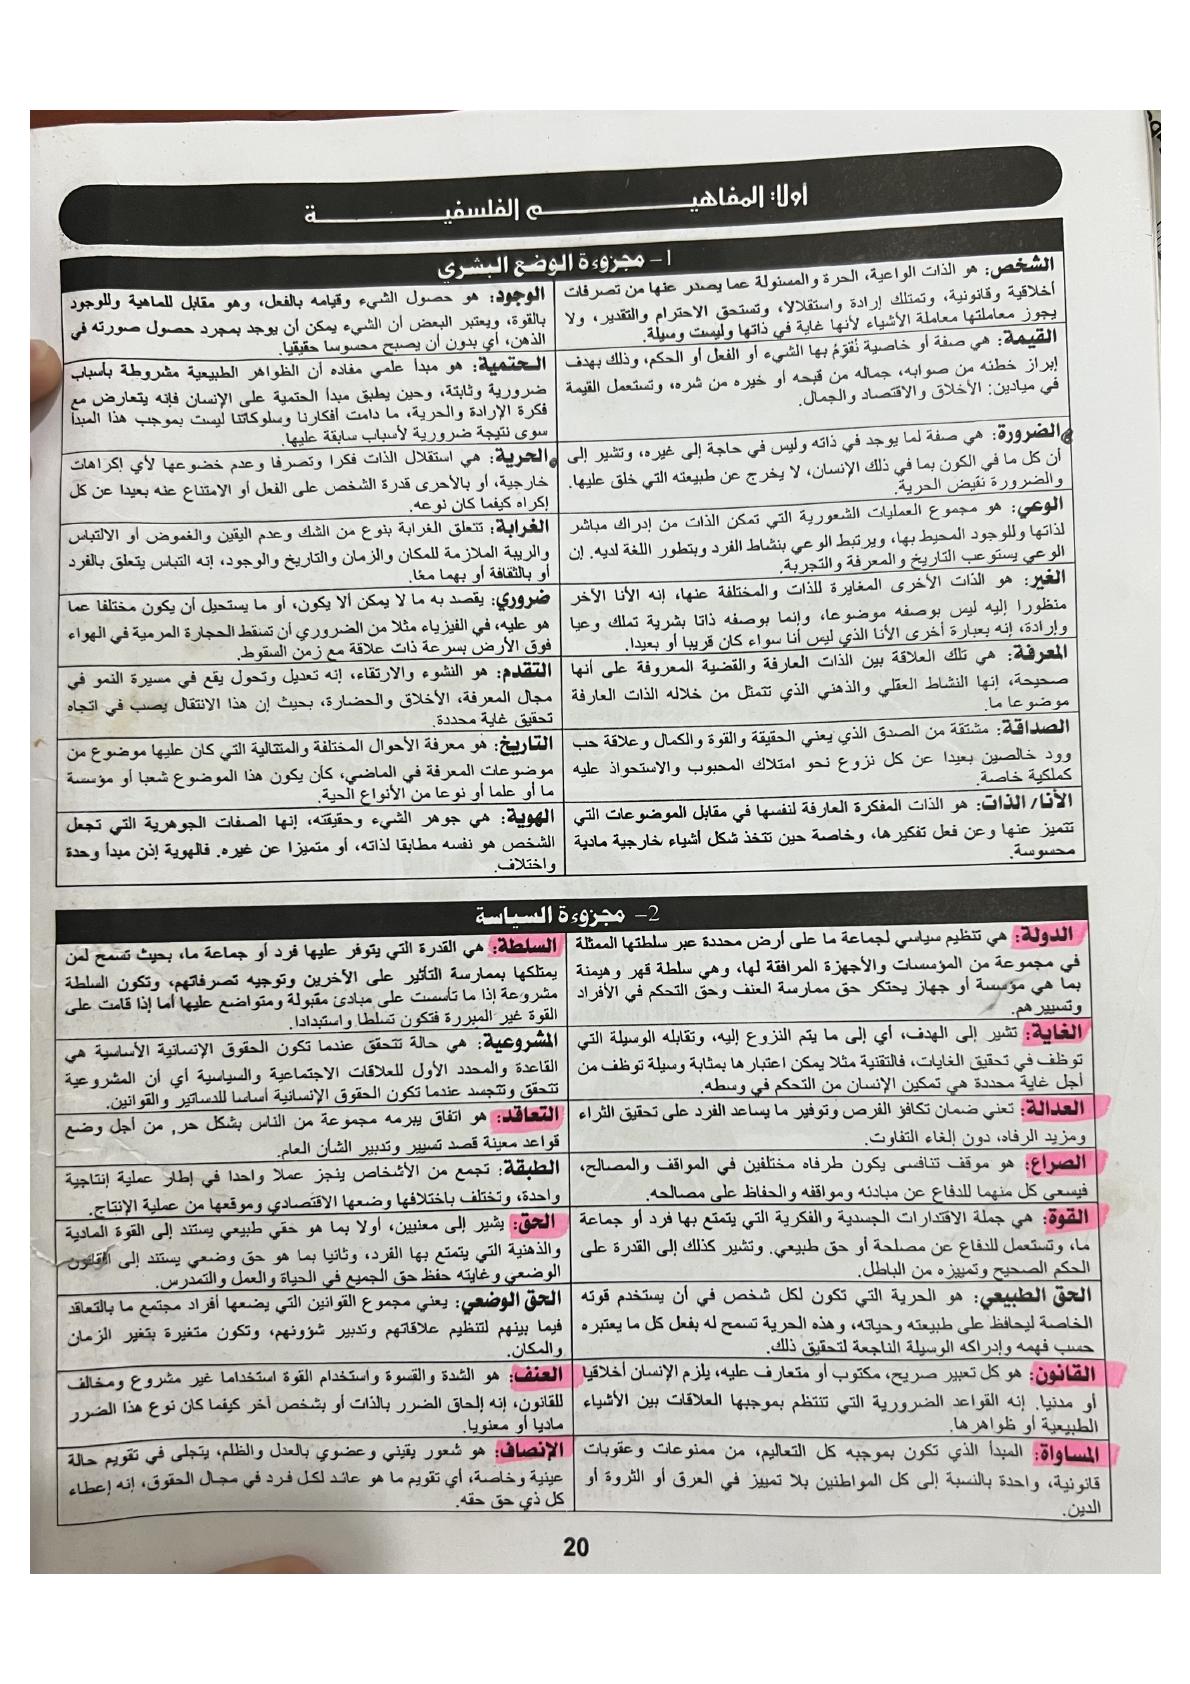 أولا: المفاهيـــم الفلسفيـــة
1- مجزوءة الوضع البشري
الشخص: هو الذات الواعية، الحرة والمسئولة عما يصدر عنها من تصرفات
أخلاقية وقانونية، وتمتلك إرادة واستقلالا، وتستحق الاحترام والتقدير، ولا
يجوز معاملتها معاملة الأشياء لأنها غاية في ذاتها وليست وسيلة.
القيمة: هي صفة أو خاصية نُقوّمُ بها الشيء أو الفعل أو الحكم، وذلك بهدف
إبراز خطئه من صوابه، جماله من قبحه أو خيره من شره، وتستعمل القيمة
في ميادين: الأخلاق والاقتصاد والجمال.
الضرورة: هي صفة لما يوجد في ذاته وليس في حاجة إلى غيره، وتشير إلى
أن كل ما في الكون بما في ذلك الإنسان، لا يخرج عن طبيعته التي خلق عليها.
والضرورة نقيض الحرية.
الوعي: هو مجموع العمليات الشعورية التي تمكن الذات من إدراك مباشر
لذاتها وللوجود المحيط بها، ويرتبط الوعي بنشاط الفرد وبتطور اللغة لديه. إن
الوعي يستوعب التاريخ والمعرفة والتجربة.
الغير: هو الذات الأخرى المغايرة للذات والمختلفة عنها، إنه الأنا الآخر
منظورا إليه ليس بوصفه موضوعا، وإنما بوصفه ذاتا بشرية تملك وعيا
وإرادة، إنه بعبارة أخرى الأنا الذي ليس أنا سواء كان قريبا أو بعيدا.
المعرفة: هي تلك العلاقة بين الذات العارفة والقضية المعروفة على أنها
صحيحة، إنها النشاط العقلي والذهني الذي تتمثل من خلاله الذات العارفة
موضوعا ما.
الصداقة: مشتقة من الصدق الذي يعني الحقيقة والقوة والكمال وعلاقة حب
وود خالصين بعيدا عن كل نزوع نحو امتلاك المحبوب والاستحواذ عليه
كملكية خاصة.
الأنا/ الذات: هو الذات المفكرة العارفة لنفسها في مقابل الموضوعات التي
تتميز عنها وعن فعل تفكيرها، وخاصة حين تتخذ شكل أشياء خارجية مادية
محسوسة.
الوجود: هو حصول الشيء وقيامه بالفعل، وهو مقابل للماهية وللوجود
بالقوة، ويعتبر البعض أن الشيء يمكن أن يوجد بمجرد حصول صورته في
الذهن، أي بدون أن يصبح محسوسا حقيقيا.
الحتمية: هو مبدأ علمي مفاده أن الظواهر الطبيعية مشروطة بأسباب
ضرورية وثابتة، وحين يطبق مبدأ الحتمية على الإنسان فإنه يتعارض مع
فكرة الإرادة والحرية، ما دامت أفكارنا وسلوكاتنا ليست بموجب هذا المبدأ
سوى نتيجة ضرورية لأسباب سابقة عليها.
الحرية: هي استقلال الذات فكرا وتصرفا وعدم خضوعها لأي إكراهات
خارجية، أو بالأحرى قدرة الشخص على الفعل أو الامتناع عنه بعيدا عن كل
إكراه كيفما كان نوعه.
الغرابة: تتعلق الغرابة بنوع من الشك وعدم اليقين والغموض أو الالتباس
والريبة الملازمة للمكان والزمان والتاريخ والوجود، إنه التباس يتعلق بالفرد
أو بالثقافة أو بهما معًا.
ضروري: يقصد به ما لا يمكن ألا يكون، أو ما يستحيل أن يكون مختلفا عما
هو عليه، في الفيزياء مثلا من الضروري أن تسقط الحجارة المرمية في الهواء
فوق الأرض بسرعة ذات علاقة مع زمن السقوط.
التقدم: هو النشوء والارتقاء، إنه تعديل وتحول يقع في مسيرة النمو في
مجال المعرفة، الأخلاق والحضارة، بحيث إن هذا الانتقال يصب في اتجاه
تحقيق غاية محددة.
التاريخ: هو معرفة الأحوال المختلفة والمتتالية التي كان عليها موضوع من
موضوعات المعرفة في الماضي، كأن يكون هذا الموضوع شعبا أو مؤسسة
ما أو علما أو نوعا من الأنواع الحية.
الهوية: هي جوهر الشيء وحقيقته، إنها الصفات الجوهرية التي تجعل
الشخص هو نفسه مطابقا لذاته، أو متميزا عن غيره. فالهوية إذن مبدأ وحدة
واختلاف.
2- مجزوءة السياسة
الدولة: هي تنظيم سياسي لجماعة ما على أرض محددة عبر سلطتها الممثلة
في مجموعة من المؤسسات والأجهزة المرافقة لها، وهي سلطة قهر وهيمنة
بما هي مؤسسة أو جهاز يحتكر حق ممارسة العنف وحق التحكم في الأفراد
وتسييرهم.
الغاية: تشير إلى الهدف، أي إلى ما يتم النزوع إليه، وتقابله الوسيلة التي
توظف في تحقيق الغايات، فالتقنية مثلا يمكن اعتبارها بمثابة وسيلة توظف من
أجل غاية محددة هي تمكين الإنسان من التحكم في وسطه.
العدالة: تعني ضمان تكافؤ الفرص وتوفير ما يساعد الفرد على تحقيق الثراء
ومزيد الرفاه، دون إلغاء التفاوت.
الصراع: هو موقف تنافسي يكون طرفاه مختلفين في المواقف والمصالح،
فيسعى كل منهما للدفاع عن مبادئه ومواقفه والحفاظ على مصالحه.
القوة: هي جملة الاقتدارات الجسدية والفكرية التي يتمتع بها فرد أو جماعة
ما، وتستعمل للدفاع عن مصلحة أو حق طبيعي. وتشير كذلك إلى القدرة على
الحكم الصحيح وتمييزه من الباطل.
الحق الطبيعي: هو الحرية التي تكون لكل شخص في أن يستخدم قوته
الخاصة ليحافظ على طبيعته وحياته، وهذه الحرية تسمح له بفعل كل ما يعتبره
حسب فهمه وإدراكه الوسيلة الناجعة لتحقيق ذلك.
القانون: هو كل تعبير صريح، مكتوب أو متعارف عليه، يلزم الإنسان أخلاقيا
أو مدنيا. إنه القواعد الضرورية التي تنتظم بموجبها العلاقات بين الأشياء
الطبيعية أو ظواهرها.
المساواة: المبدأ الذي تكون بموجبه كل التعاليم، من ممنوعات وعقوبات
قانونية، واحدة بالنسبة إلى كل المواطنين بلا تمييز في العرق أو الثروة أو
الدين.
السلطة: هي القدرة التي يتوفر عليها فرد أو جماعة ما، بحيث تسمح لمن
يمتلكها بممارسة التأثير على الآخرين وتوجيه تصرفاتهم، وتكون السلطة
مشروعة إذا ما تأسست على مبادئ مقبولة ومتواضع عليها أما إذا قامت على
القوة غير المبررة فتكون تسلطا واستبدادا.
المشروعية: هي حالة تتحقق عندما تكون الحقوق الإنسانية الأساسية هي
القاعدة والمحدد الأول للعلاقات الاجتماعية والسياسية أي أن المشروعية
تتحقق وتتجسد عندما تكون الحقوق الإنسانية أساسا للدساتير والقوانين.
التعاقد: هو اتفاق يبرمه مجموعة من الناس بشكل حر, من أجل وضع
قواعد معينة قصد تسيير وتدبير الشأن العام.
الطبقة: تجمع من الأشخاص ينجز عملا واحدا في إطار عملية إنتاجية
واحدة، وتختلف باختلافها وضعها الاقتصادي وموقعها من عملية الإنتاج.
الحق: يشير إلى معنيين، أولا بما هو حقي طبيعي يستند إلى القوة المادية
والذهنية التي يتمتع بها الفرد، وثانيا بما هو حق وضعي يستند إلى القانون
الوضعي وغايته حفظ حق الجميع في الحياة والعمل والتمدرس.
الحق الوضعي: يعني مجموع القوانين التي يضعها أفراد مجتمع ما بالتعاقد
فيما بينهم لتنظيم علاقاتهم وتدبير شؤونهم، وتكون متغيرة بتغير الزمان
والمكان.
العنف: هو الشدة والقسوة واستخدام القوة استخداما غير مشروع ومخالف
للقانون، إنه إلحاق الضرر بالذات أو بشخص آخر كيفما كان نوع هذا الضرر
ماديا أو معنويا.
الإنصاف: هو شعور يقيني وعضوي بالعدل والظلم، يتجلى في تقويم حالة
عينية وخاصة، أي تقويم ما هو عائد لكل فرد في مجال الحقوق، إنه إعطاء
كل ذي حق حقه.
20